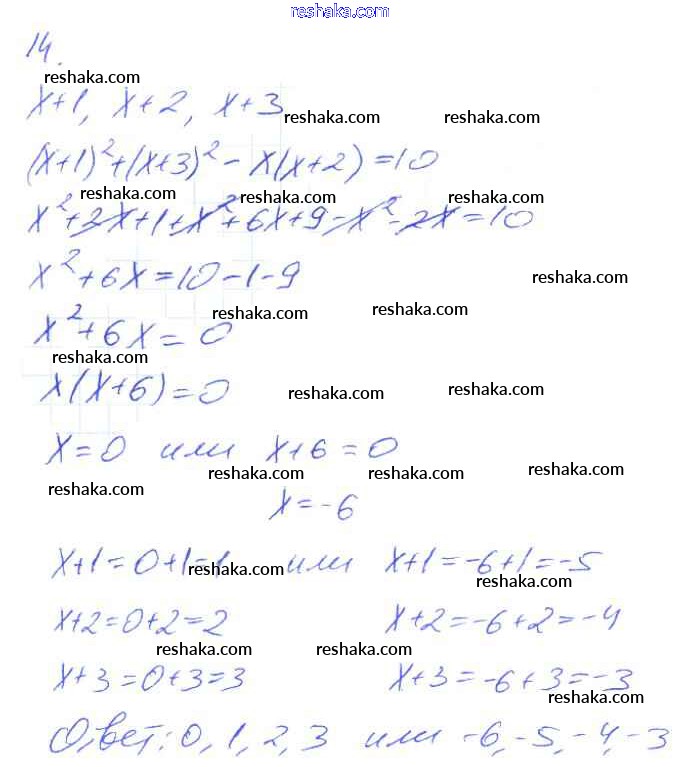 reshaka.com
14.
reshaka.com
x+1, x+2, x+3
reshaka.com reshaka.com
(x+1)²+(x+3)² - x(x+2) = 10
reshaka.com reshaka.com reshaka.com
x²+2x+1+x²+6x+9-x²-2x=10
x²+6x=10-1-9
reshaka.com
reshaka.com reshaka.com
x²+6x=0
reshaka.com
x(x+6)=0
reshaka.com reshaka.com
x=0 или x+6=0
reshaka.com reshaka.com reshaka.com
reshaka.com
x=-6
x+1=0+1=1 или x+1=-6+1=-5
reshaka.com reshaka.com
x+2=0+2=2 x+2=-6+2=-4
reshaka.com reshaka.com
x+3=0+3=3 x+3=-6+3=-3
reshaka.com
Ответ: 0, 1, 2, 3 или -6, -5, -4, -3
reshaka.com reshaka.com